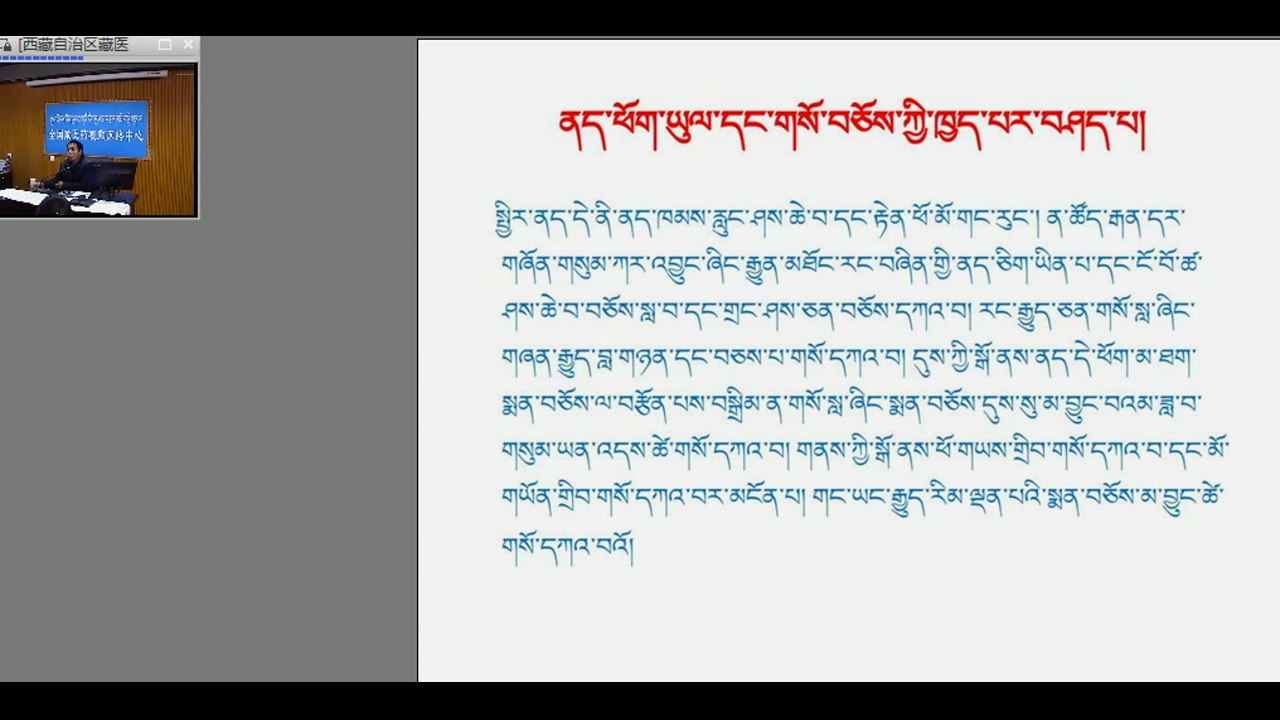 [西藏自治区藏医
ནད་ཕོག་ཡུལ་དང་གསོ་བཅོས་ཀྱི་ཁྱད་པར་བཤད་པ།
སྤྱིར་ནད་དེ་ནི་ནད་ཁམས་རླུང་ཤས་ཆེ་བ་དང་རྟེན་ཕོ་མོ་གང་རུང་། ན་ཚོད་རྒན་དར་
གཞོན་གསུམ་ཀར་འབྱུང་ཞིང་རྒྱུན་མཐོང་རང་བཞིན་གྱི་ནད་ཅིག་ཡིན་པ་དང་ངོ་བོ་ཚ་
ཤས་ཆེ་བ་བཅོས་སླ་བ་དང་གྲང་ཤས་ཅན་བཅོས་དཀའ་བ། རང་རྒྱུད་ཅན་གསོ་སླ་ཞིང་
གཞན་རྒྱུད་བླ་གཉན་དང་བཅས་པ་གསོ་དཀའ་བ། དུས་ཀྱི་སྒོ་ནས་ནད་དེ་ཕོག་མ་ཐག་
སྨན་བཅོས་ལ་བརྩོན་པས་བསྒྲིམ་ན་གསོ་སླ་ཞིང་སྨན་བཅོས་དུས་སུ་མ་བྱུང་བའམ་ཟླ་བ་
གསུམ་ཡན་འདས་ཚེ་གསོ་དཀའ་བ། གནས་ཀྱི་སྒོ་ནས་ཕོ་གཡས་གྲིབ་གསོ་དཀའ་བ་དང་མོ་
གཡོན་གྲིབ་གསོ་དཀའ་བར་མངོན་པ། གང་ཡང་རྒྱུད་རིམ་ལྡན་པའི་སྨན་བཅོས་མ་བྱུང་ཚེ་
གསོ་དཀའ་བའོ།